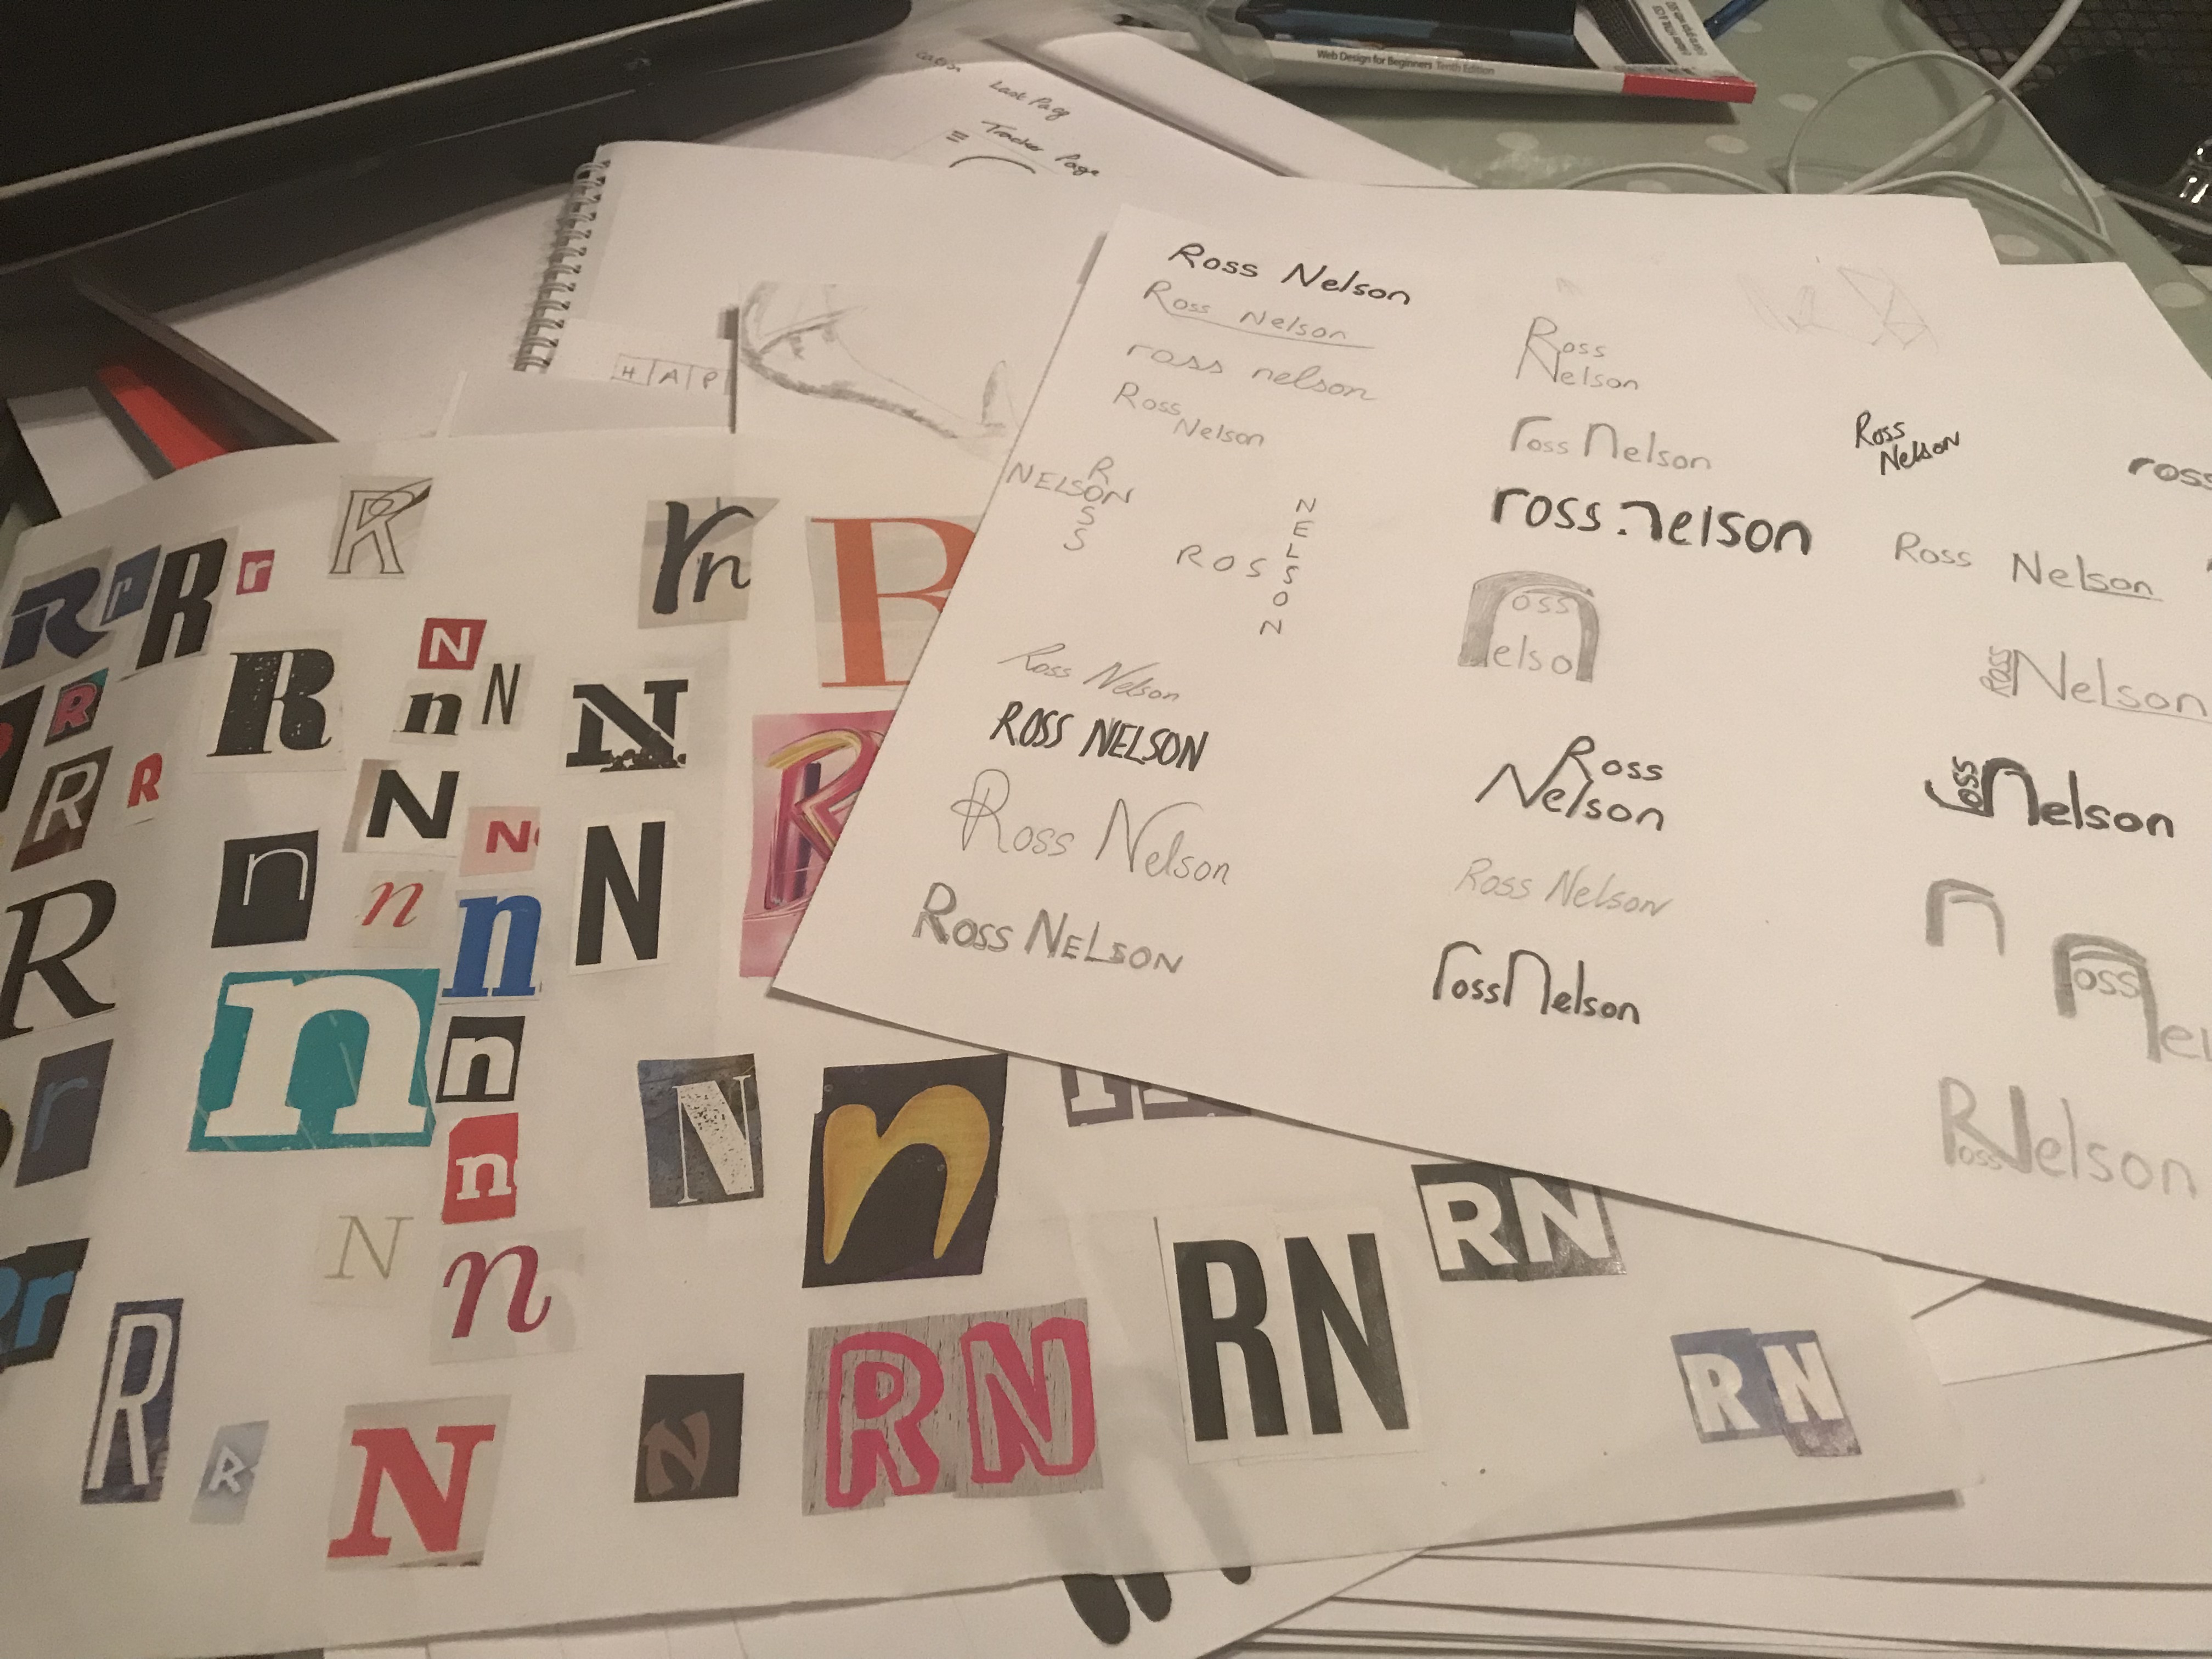 Web Design for Beginners Tenth Edition
Last Page
Tracker Page
H A P
Ross Nelson
Ross Nelson
ross nelson
Ross
Nelson
R
NELSON
S
S
ROS
N
E
L
S
O
N
Ross Nelson
ROSS NELSON
Ross Nelson
ROSS NELSON
Ross
Nelson
ross nelson
ross nelson
oss
elso
Ross
Nelson
Ross Nelson
ross nelson
Ross
Nelson
ross
Ross Nelson
ROSS Nelson
ross nelson
n
oss
el
Ross Nelson
R r R r
R
r n
R
R
N
n N
N
R R
N
N
n
n
n
N
R
n
n
r
n
N
n
N
n
r
R
R
N
N
RN
RN
RN
RN